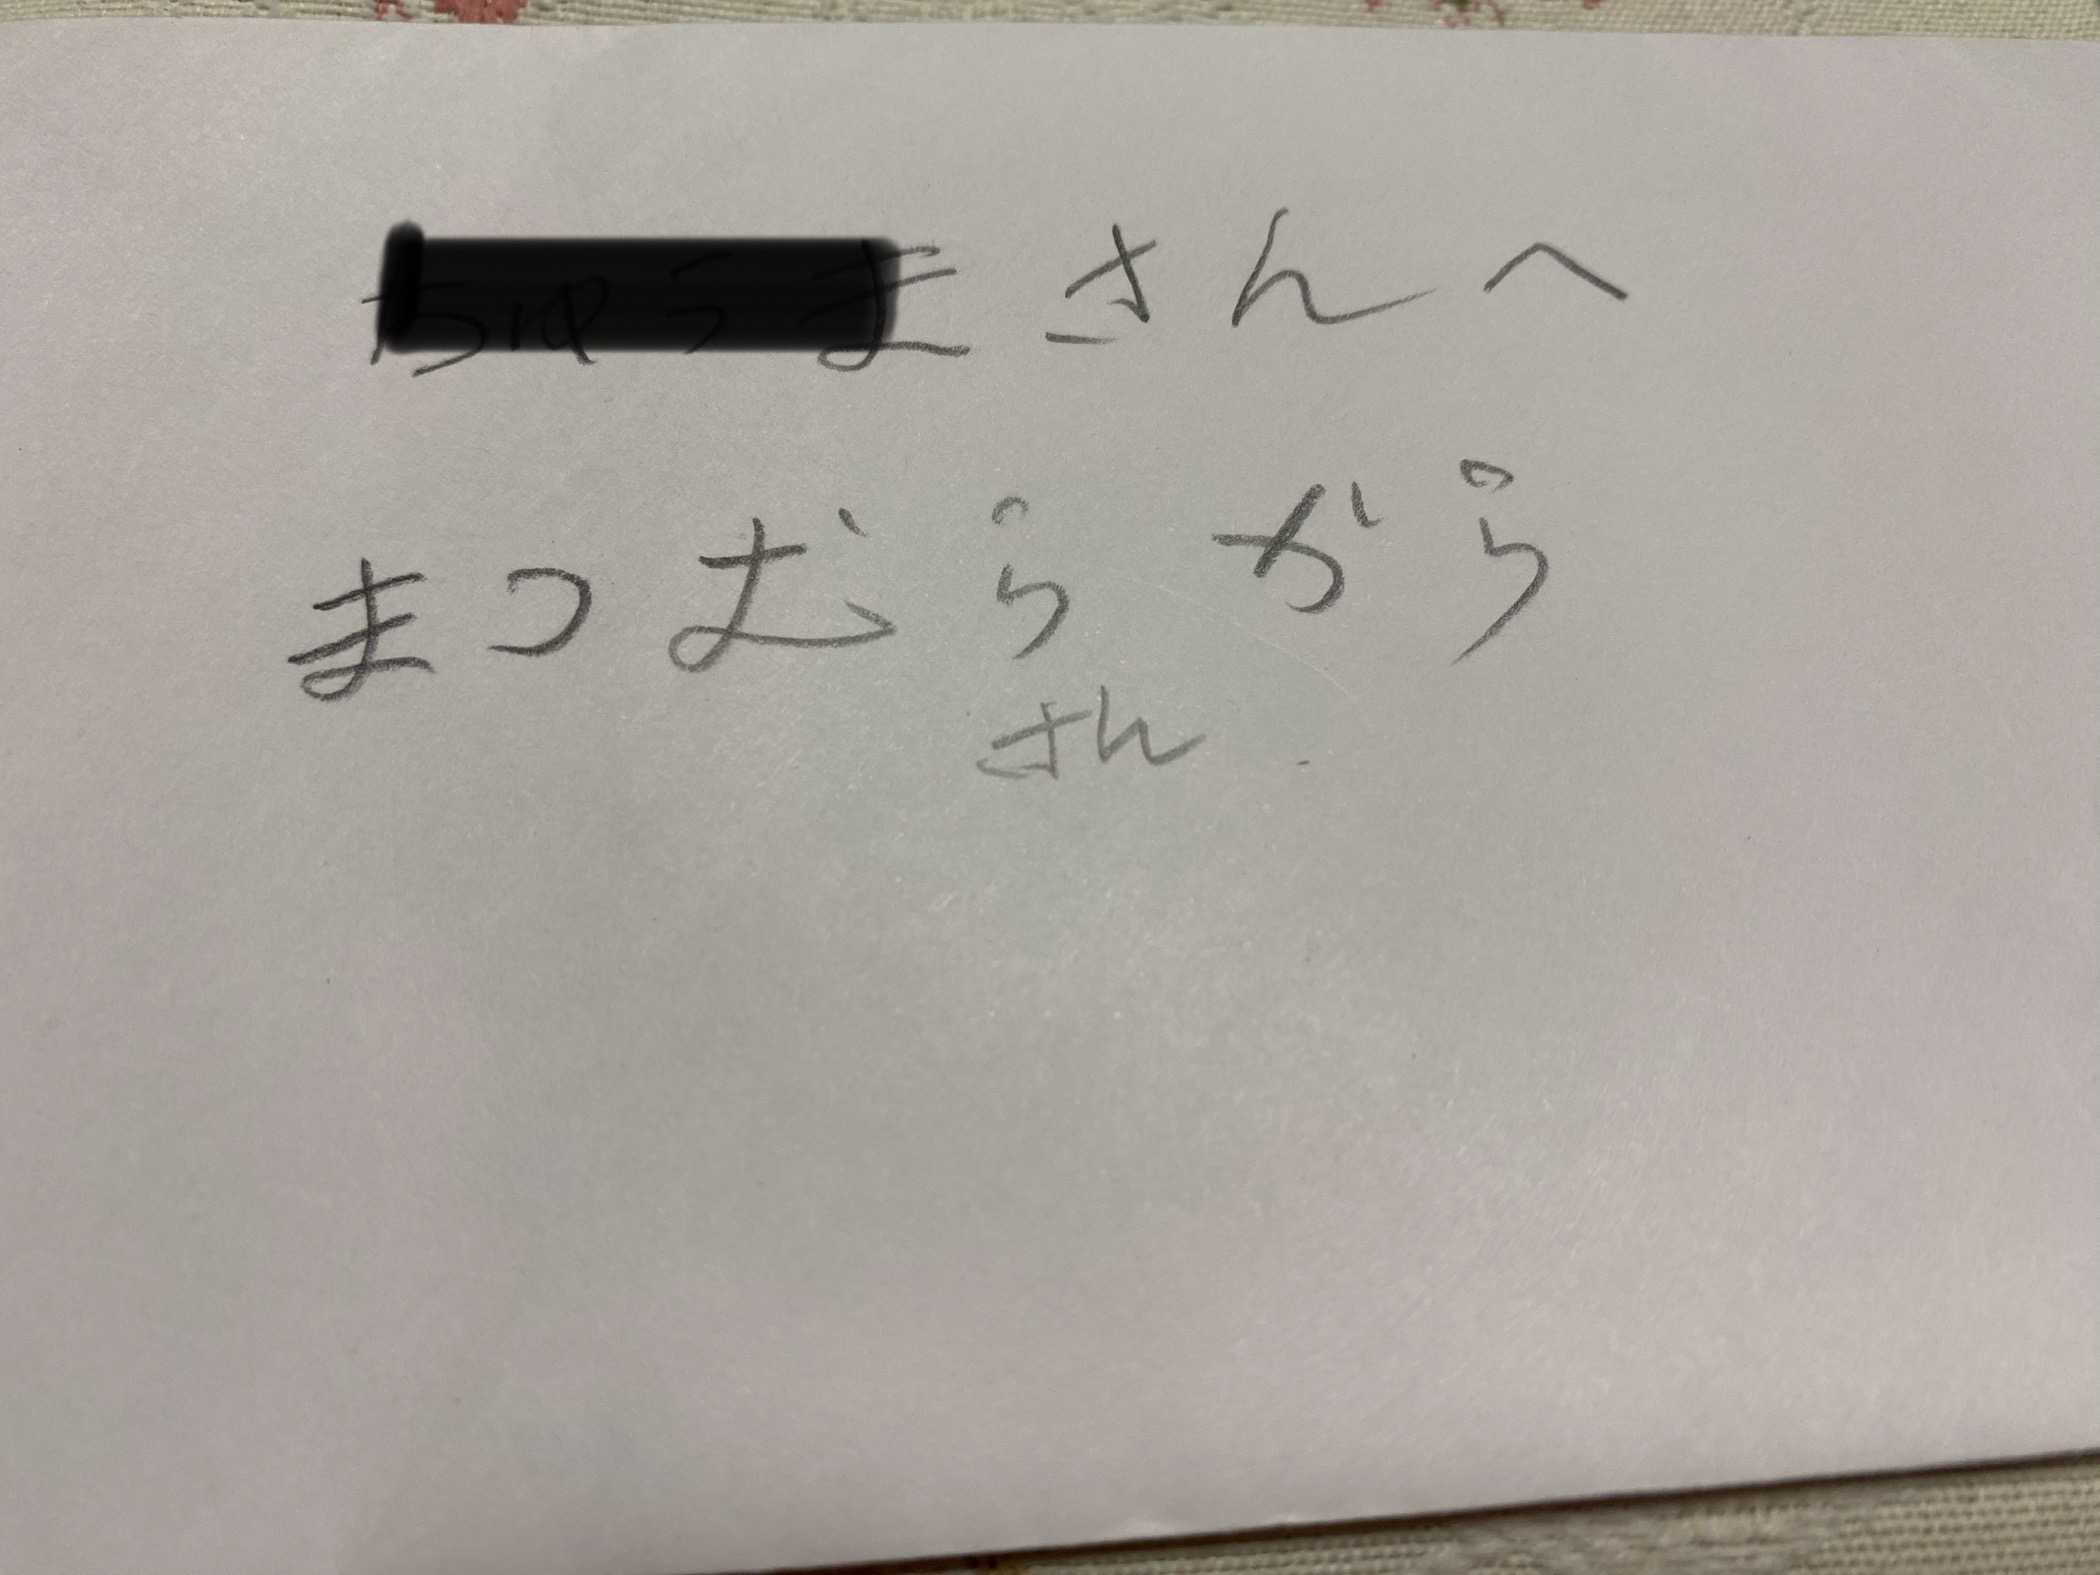 さんへ
まつむらから
さん